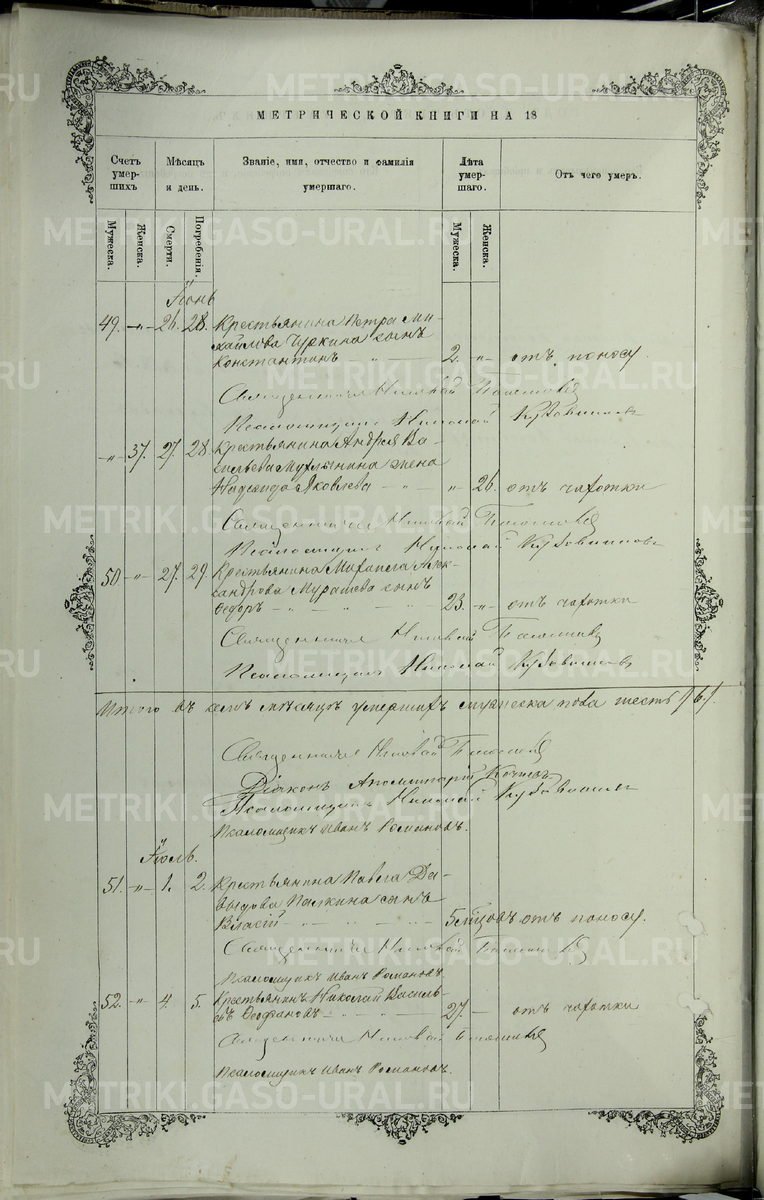 МЕТРИЧЕСКОЙ КНИГИ НА 18
Счетъ умер- шихъ
Мѣсяцъ и день.
Званіе, имя, отчество и фамилія умершаго.
Лѣта умер- шаго.
Отъ чего умеръ.
Мужеска. Женска. Смерти. Погребенія. Мужеска. Женска.
Іюнь
49. " 26. 28. Крестьянина Петра Ми-
хайлова Чуркина сынъ
Константинъ 2. " отъ поносу.
Священникъ Николай
Псаломщикъ Николай
" 37. 27. 28. Крестьянина Андрея Ва-
сильева жена
Надежда Яковлева " 26. отъ чахотки
Священникъ Николай
Псаломщикъ Николай
50 " 27. 29. Крестьянина Михаила Алек-
сандрова Мурашева сынъ
Ѳедоръ 23. " отъ чахотки
Священникъ Николай
Псаломщикъ Николай
Итого въ семъ мѣсяцѣ умершихъ мужеска пола шесть /6/.
Священникъ Николай
Діаконъ Аполлинарій
Псаломщикъ Николай
Псаломщикъ Иванъ Романовъ.
Іюль.
51. " 1. 2. Крестьянина Павла Да-
выдова Палкина сынъ
Власій 5 мѣсяцовъ отъ поносу.
Священникъ Николай
Псаломщикъ Иванъ Романовъ.
52. " 4. 5. Крестьянинъ Николай Василь-
евъ Ѳеофановъ 27. отъ чахотки
Священникъ Николай
Псаломщикъ Иванъ Романовъ.
METRIKI.GASO-URAL.RU